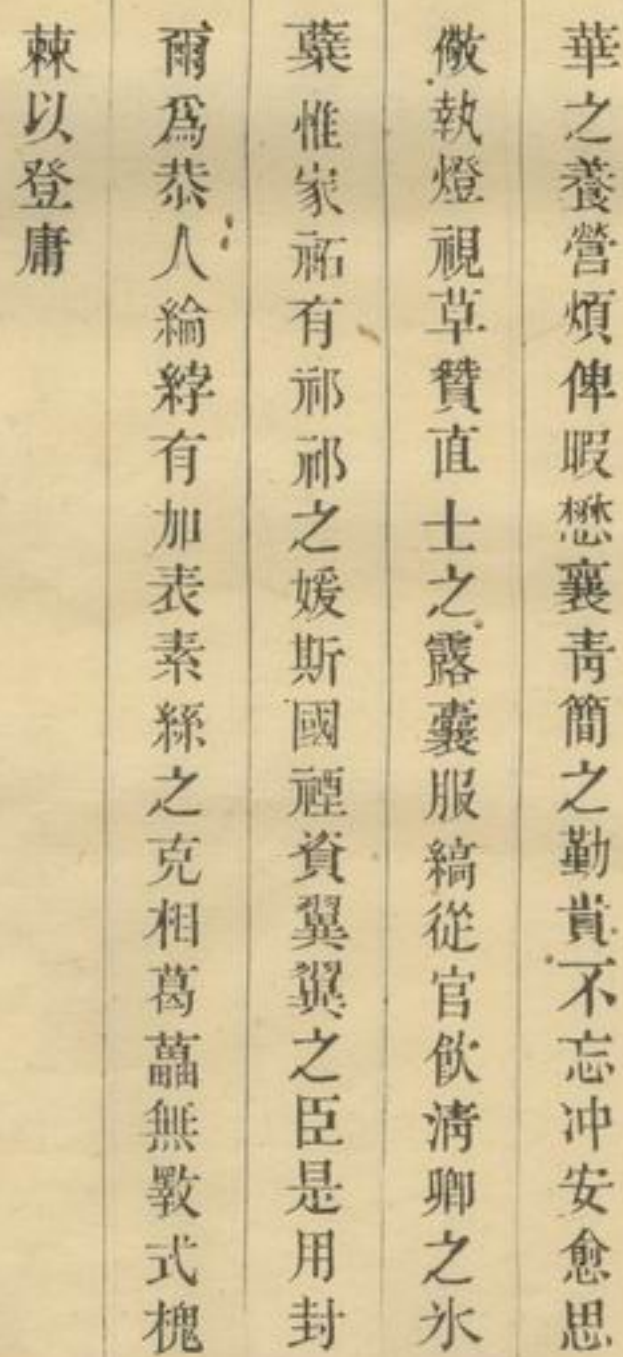 華之養營煩俾暇懋襄靑簡之勤貴不忘冲安愈思
儆執燈視草贊直士之露囊服縞從官飲淸卿之氷
蘗惟家祏有祁祁之媛斯國禋資翼翼之臣是用封
爾爲恭人綸綍有加表素絲之克相葛藟無斁式槐
棘以登庸